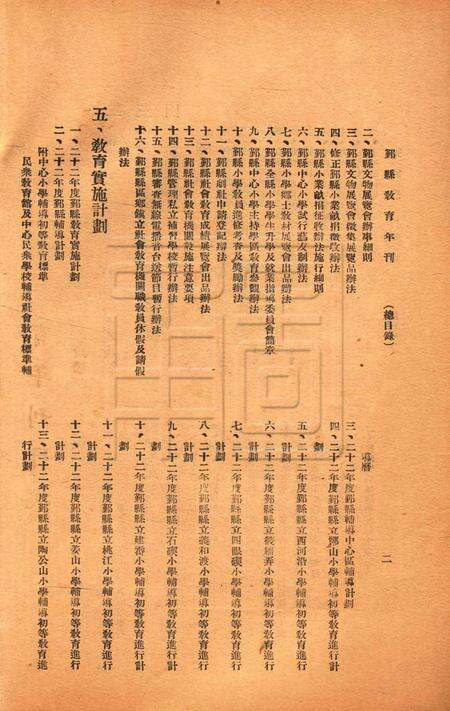 鄞縣教育年刊　（總目錄）　二
二、鄞縣文物展覽會辦事細則
三、鄞縣文物展覽會徵集展覽品辦法
四、修正鄞縣小業畝捐徵收辦法
五、鄞縣小業畝捐徵收辦法施行細則
六、鄞縣中心小學試行藝友制辦法
七、鄞縣小學鄉土教材展覽會出品辦法
八、鄞縣全縣小學學生升學及就業指導委員會簡章
九、鄞縣中心小學主持學區教育參觀辦法
十、鄞縣小學教員進修考查及獎勵辦法
十一、鄞縣劇社申請登記辦法
十二、鄞縣社會教育成績展覽會出品辦法
十三、鄞縣社會教育機關設施注意要項
十四、鄞縣管理私立補習學校暫行辦法
十五、鄞縣審查無線電播音台送節目暫行辦法
十六、鄞縣縣區鄉鎮立社會教育機關職教員休假及請假
辦法
五、教育實施計劃
一、二十二年度鄞縣教育實施計劃
二、二十二年度鄞縣輔導計劃
附中心小學輔導初等教育標準
民衆教育館及中心民衆學校輔導社會教育標準輔
導曆
三、二十二年度鄞縣輔導中心區輔導計劃
四、二十二年度鄞縣縣立鄮山小學輔導初等教育進行計
劃
五、二十二年度鄞縣縣立西河沿小學輔導初等教育進行
計劃
六、二十二年度鄞縣縣立廟弄小學輔導初等教育進行
計劃
七、二十二年度鄞縣縣立四眼碶小學輔導初等教育進行
計劃
八、二十二年度鄞縣縣立義和渡小學輔導初等教育進行
計劃
九、二十二年度鄞縣縣立石碶小學輔導初等教育進行計
劃
十、二十二年度鄞縣縣立建岙小學輔導初等教育進行計
劃
十一、二十二年度鄞縣縣立桃江小學輔導初等教育進行
計劃
十二、二十二年度鄞縣縣立姜山小學輔導初等教育進行
計劃
十三、二十二年度鄞縣縣立陶公山小學輔導初等教育進
行計劃